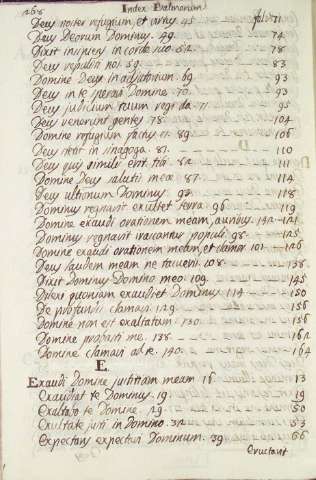 Index Psalmorum
Deus noster refugium, et virtus 45 fol. 71
Deus Deorum Dominus. 49. 74
Dixit insipiens in corde suo 52. 78
Deus repulisti nos. 59. 83
Domine Deus in adjutorium. 69. 93
Deus in te speravi Domine. 70. 93
Deus judicium tuum regi da. 71 95
Deus venerunt gentes 78. 104
Domine refugium factus es. 89. 106
Deus stetit in sinagoga. 81. 110
Deus quis similis erit tibi. 82. 111
Domine Deus salutis meæ. 87. 114
Deus ultionum Dominus. 93. 118
Dominus regnavit exultet terra. 96 119
Domine exaudi orationem meam, auribus. 142 121
Dominus regnavit irascantur populi 98. 125
Domine exaudi orationem meam, et clamor 101. 126
Deus laudem meam ne tacueris. 108. 138
Dixit Dominus Domino meo. 109. 145
Dilexi quoniam exaudiet Dominus. 114 150
De profundis clamavi. 129. 156
Domine non est exaltatum. 130. 156
Domine probasti me. 138. 162
Domine clamavi ad te. 140. 164
E.
Exaudi Domine justitiam meam 16. 13
Exaudiat te Dominus. 19 19
Exaltabo te Domine. 29. 50
Exultate justi in Domino. 32 53
Expectans expectavi Dominum. 39 66
Eructavit